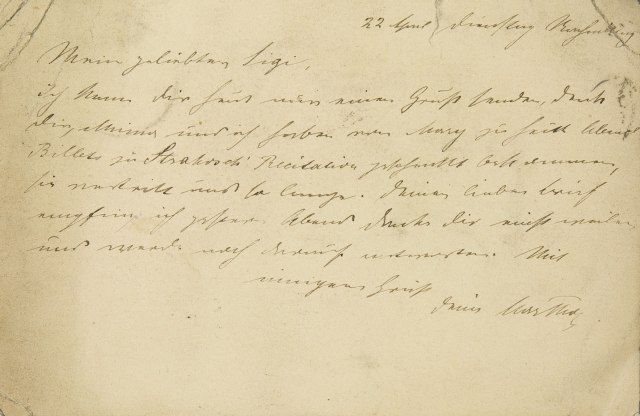 22 April Dienstag Nachmittag
Mein geliebter Sigi,
ich kann dir heut nur einen Gruß senden, denk
dir, Minna und ich haben von Mary zu heut Abend
Billets zu Strakosch Recitation geschenkt bekommen,
sie und so lange. Deinen lieben Brief
empfing ich gestern Abend danke dir
und werde noch darauf antworten. Mit
innigem Gruß
deine Martha